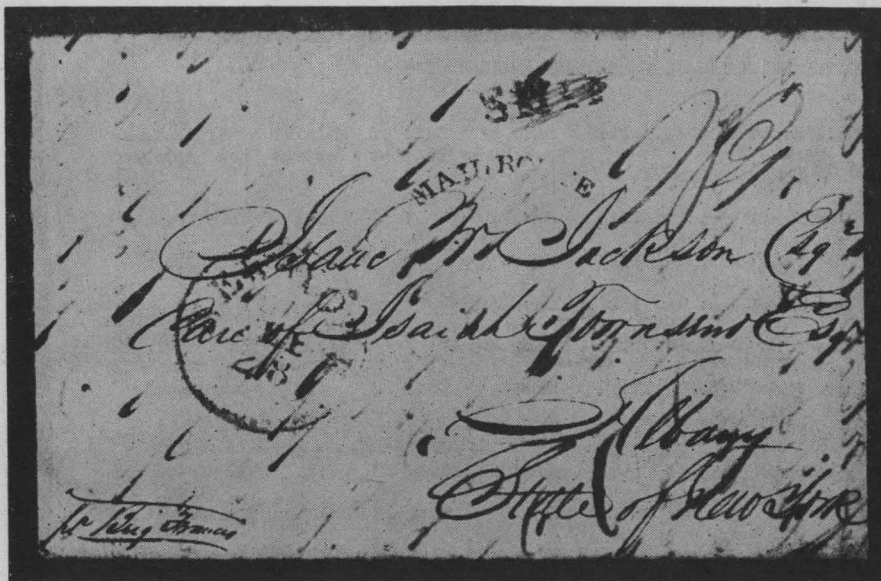 SHIP
MAIL ROUTE
Isaac W Jackson Esqr
Care of Isaiah Townsend Esqr
Albany
State of New York
pr Brig Francis